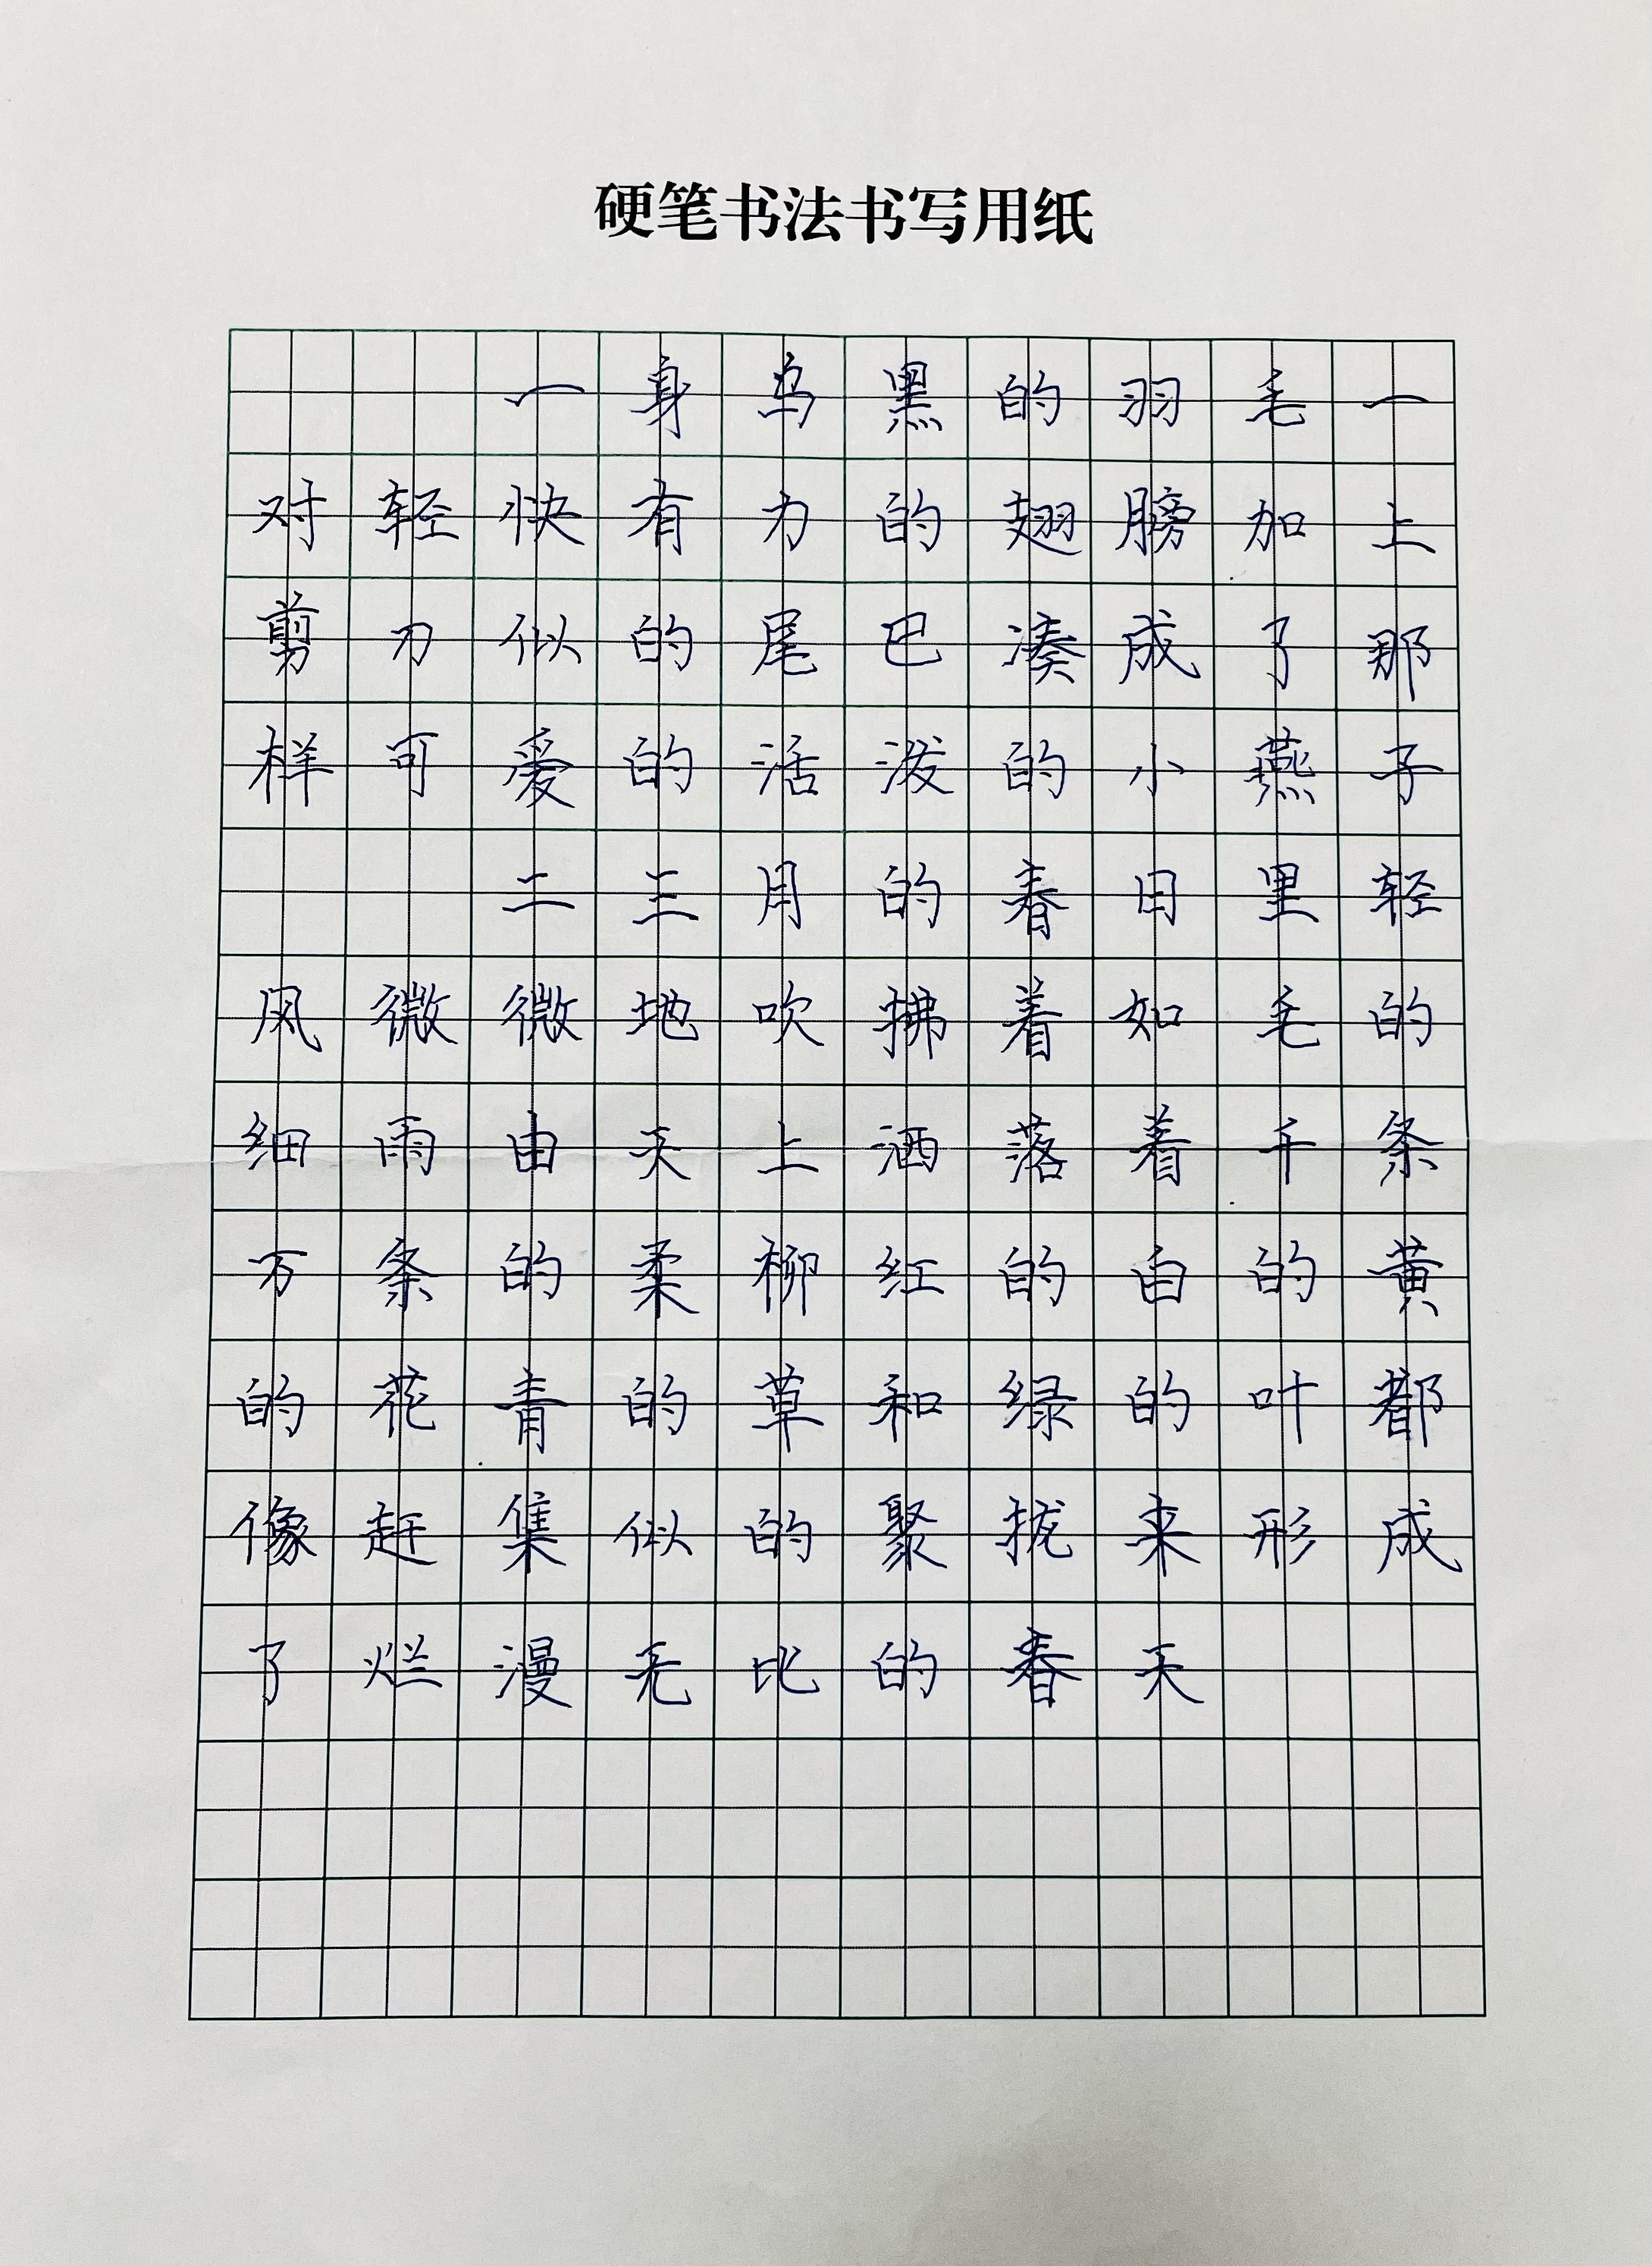 硬笔书法书写用纸
一身乌黑的羽毛一
对轻快有力的翅膀加上
剪刀似的尾巴凑成了那
样可爱的活泼的小燕子
二三月的春日里轻
风微微地吹拂着如毛的
细雨由天上洒落着千条
万条的柔柳红的白的黄
的花青的草和绿的叶都
像赶集似的聚拢来形成
了烂漫无比的春天